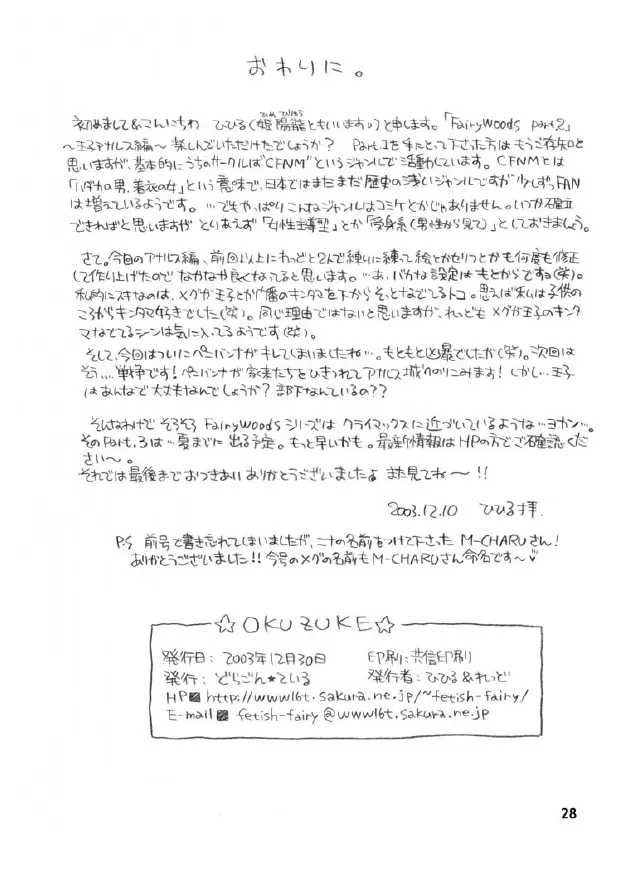 おわりに。
初めまして&こんにちわ ひひる(姫陽龍ともいいます。)と申します。「FairyWoods part.2」
〜王子アナルス編〜 楽しんでいただけたでしょうか? Part.1を手にとって下さった方はもうご存知と
思いますが、基本的にうちのサークルは"CFNM"というジャンルで活動しています。CFNMとは
「ハダカの男、着衣の女」という意味で、日本ではまだまだ歴史の浅いジャンルですが 少しずつFAN
は増えているようです。…でもやっぱりこんなジャンルはコミケとかじゃありません。いつか確立
できればと思いますが とりあえず「女性主導型」とか「受身系(男性から見て)」としておきましょう。
さて。今回のアナルス編、前回以上にれっどと2人で練りに練って絵とかセリフとかも何度も修正
して作り上げたので なかなか良くなってると思います。…あ、バカな設定は もとからですョ(笑)。
私的にスキなのは、メグが王子とか のキンタマを下からそっとなでてるトコ。思えば私は子供の
ころからキンタマ好きでした(笑)。同じ理由ではないと思いますが、れっども メグが王子のキンタ
マなでてるシーンは気に入ってるようです(笑)。
そして、今回はついにペニバンナが キレてしまいましたね…。もともと凶暴でしたか(笑)。次回は
そう…。戦争です!ペニバンナが家来たちをひきつれてアナルス城へのりこみます!しかし…王子
はあんなで大丈夫なんでしょうか?部下なんているの??
そんなわけで そろそろ FairyWoodsシリーズは クライマックスに近づいているような…ヨカン…。
そのPart.3は…夏までに出る予定。もっと早いかも。最新情報はHPの方でご確認くだ
さい〜。
それでは最後までおつきあい ありがとうございましたよ また見てね〜!!
2003.12.10 ひひる拝.
P.S 前号で書き忘れてしまいましたが、ニナの名前をつけて下さった M-CHARUさん!
ありがとうございました!!今号のメグの名前もM-CHARUさん命名です〜♥
☆OKUZUKE☆
発行日: 2003年12月30日 印刷: 共信印刷
発行: どらごん★ている 発行者: ひひる&れっど
HP http://www16t.sakura.ne.jp/~fetish-fairy/
E-mail fetish-fairy@www16t.sakura.ne.jp
28